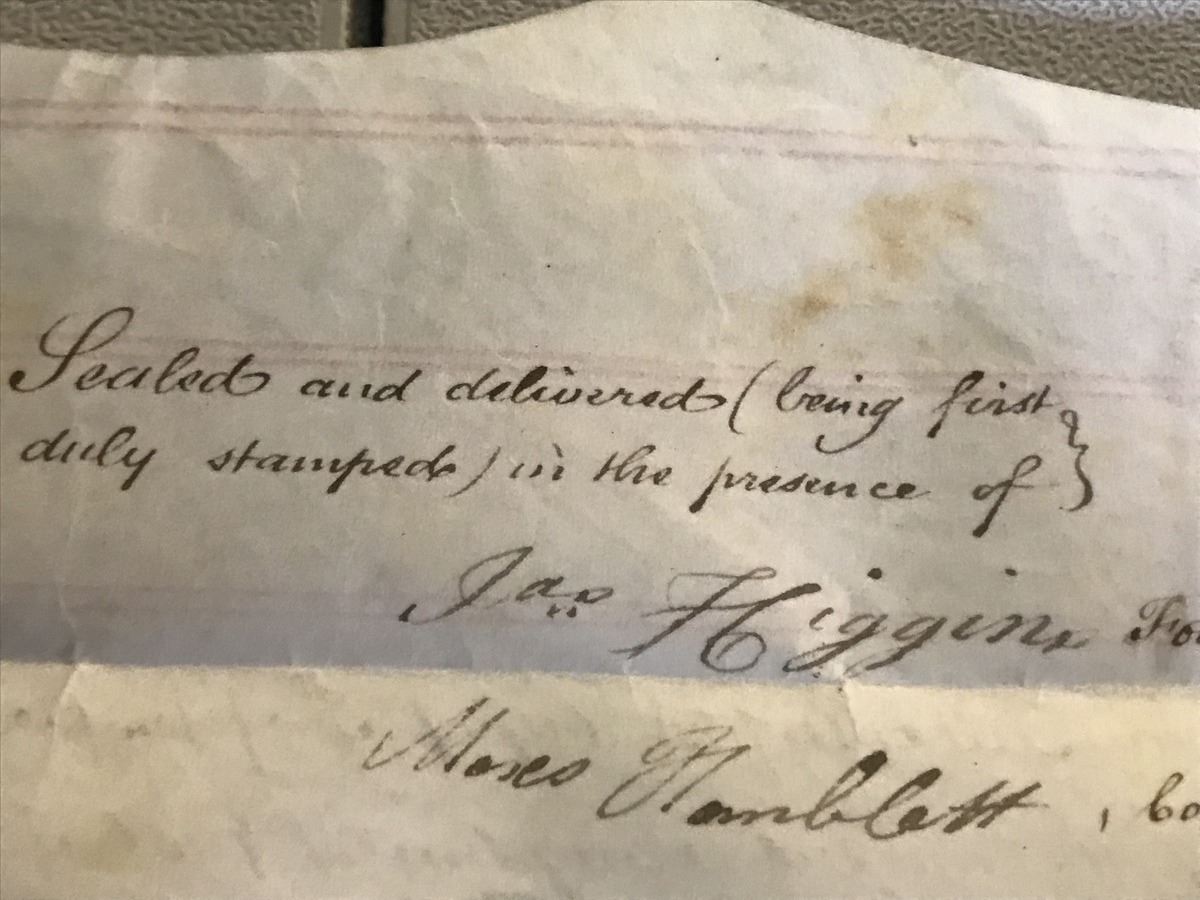 Sealed and delivered (being first
duly stamped) in the presence of
Jas Higgins
Moses Hamblett,